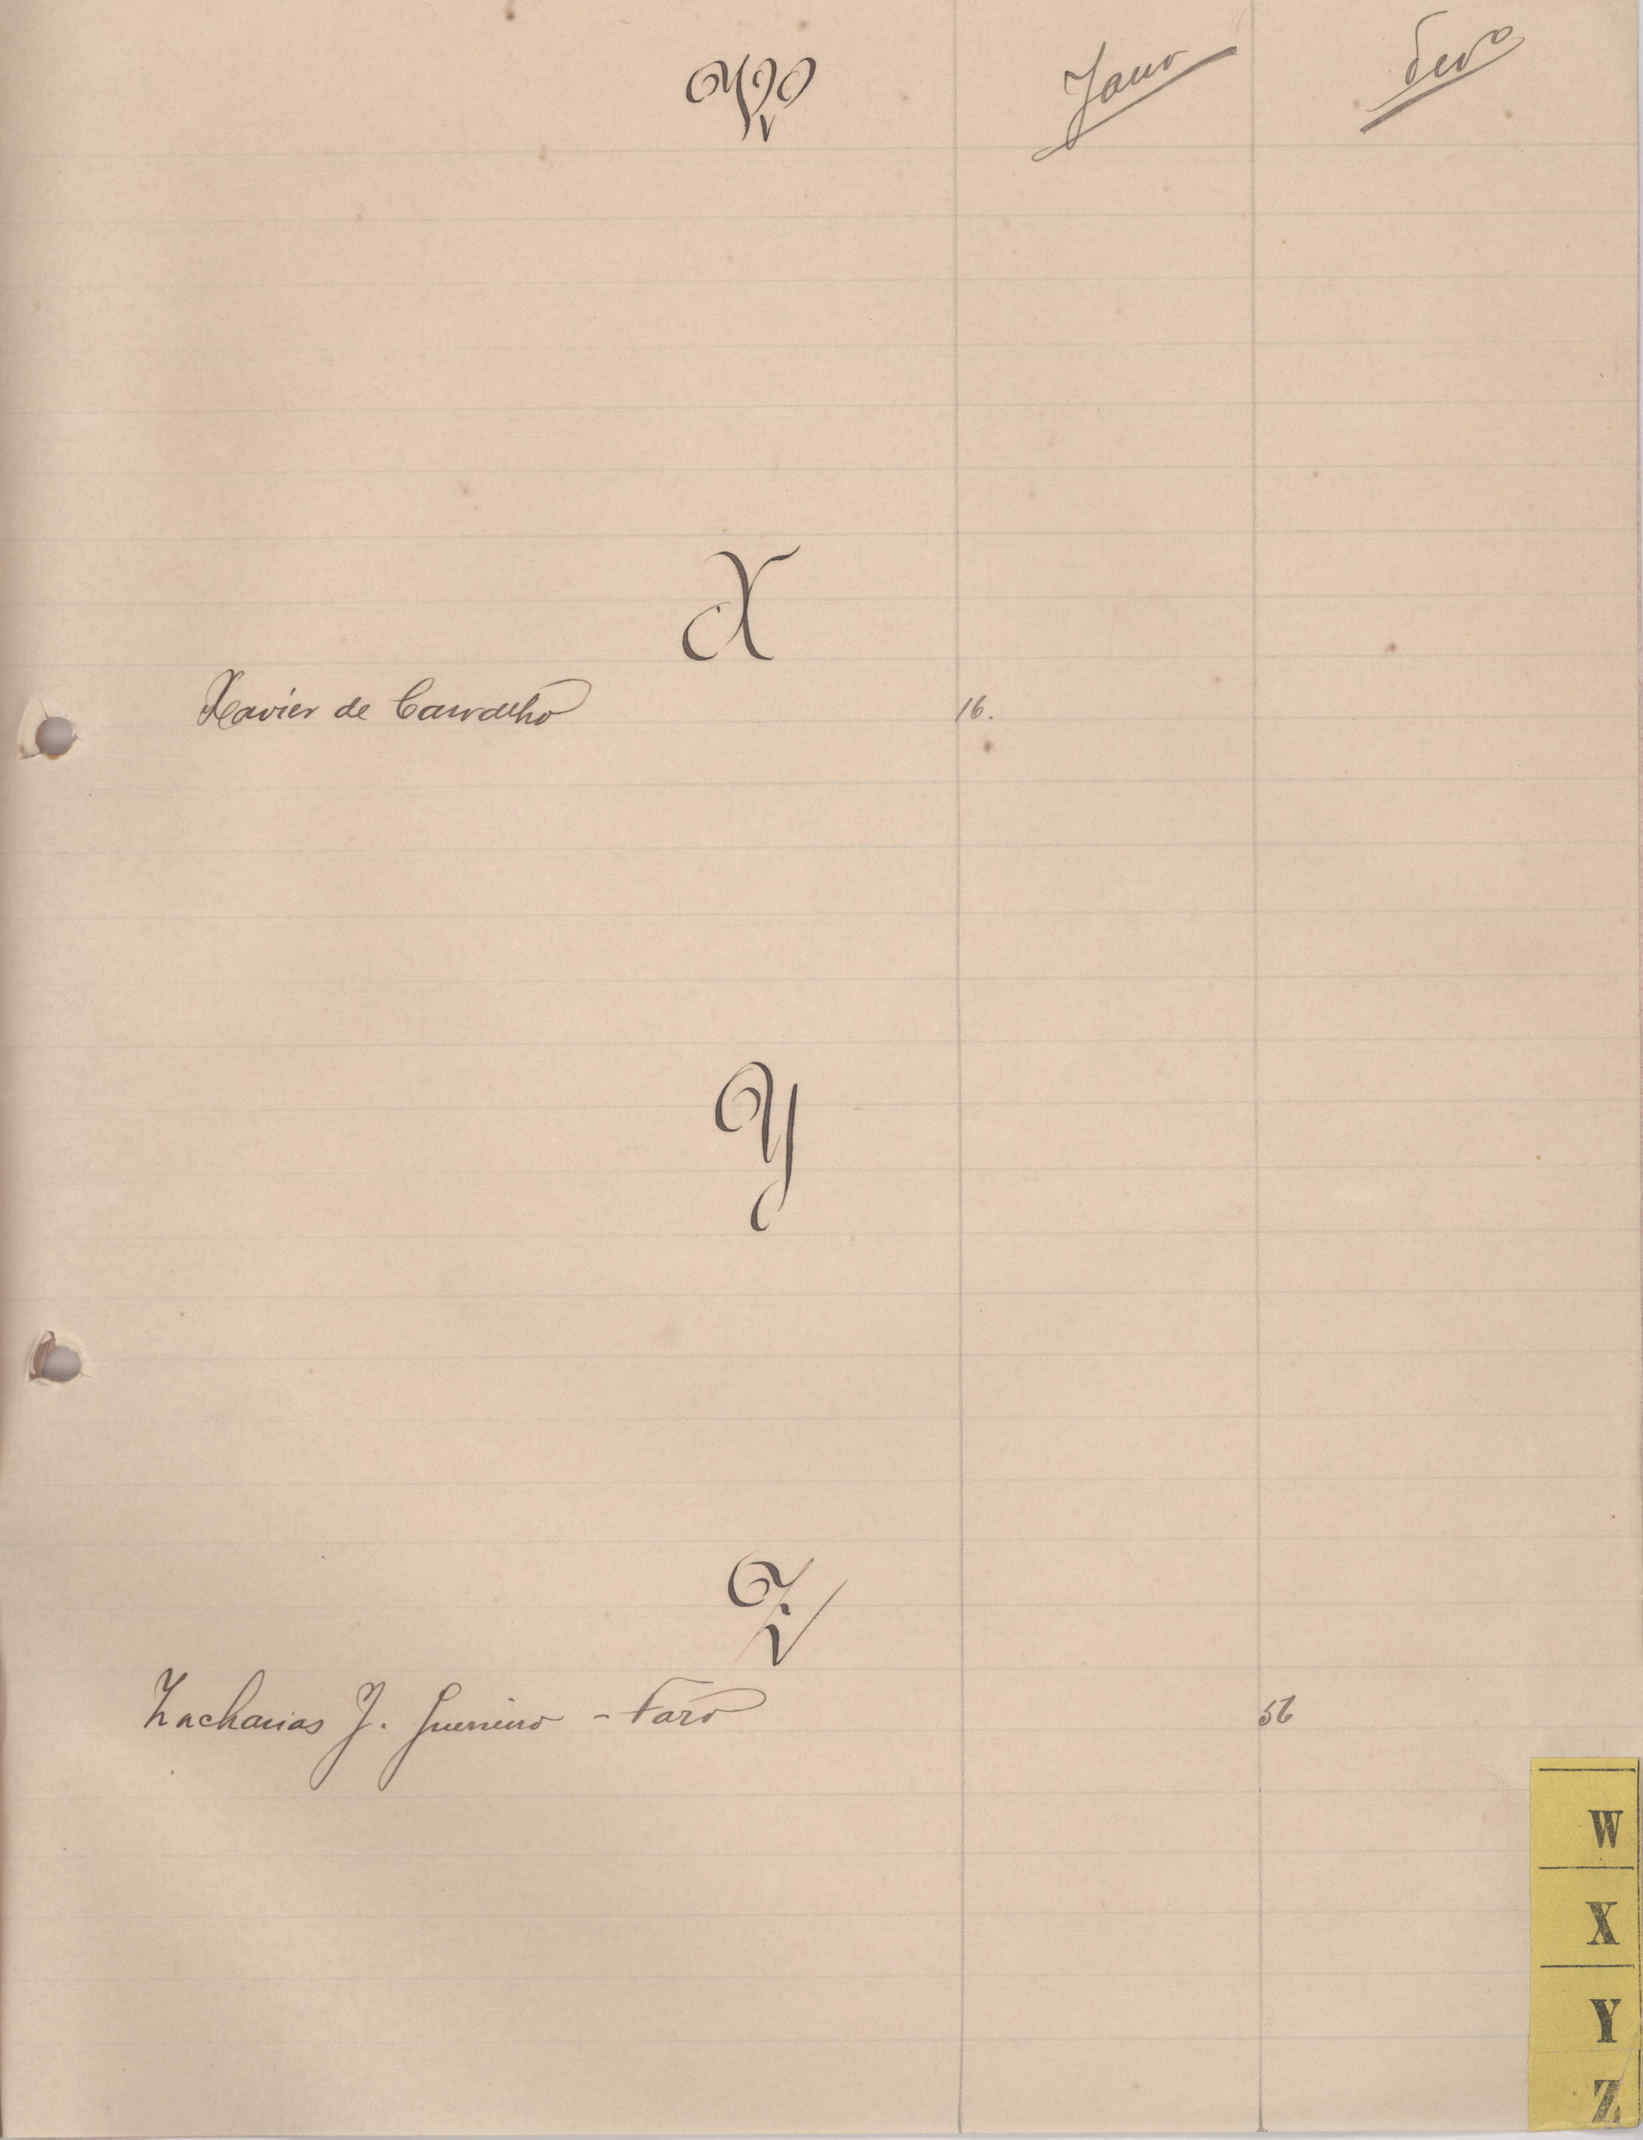 W Jan.ro Fev.ro
X
Xavier de Carvalho 16.
Y
Z
Zacharias J. Guerreiro - Faro 56
W
X
Y
Z